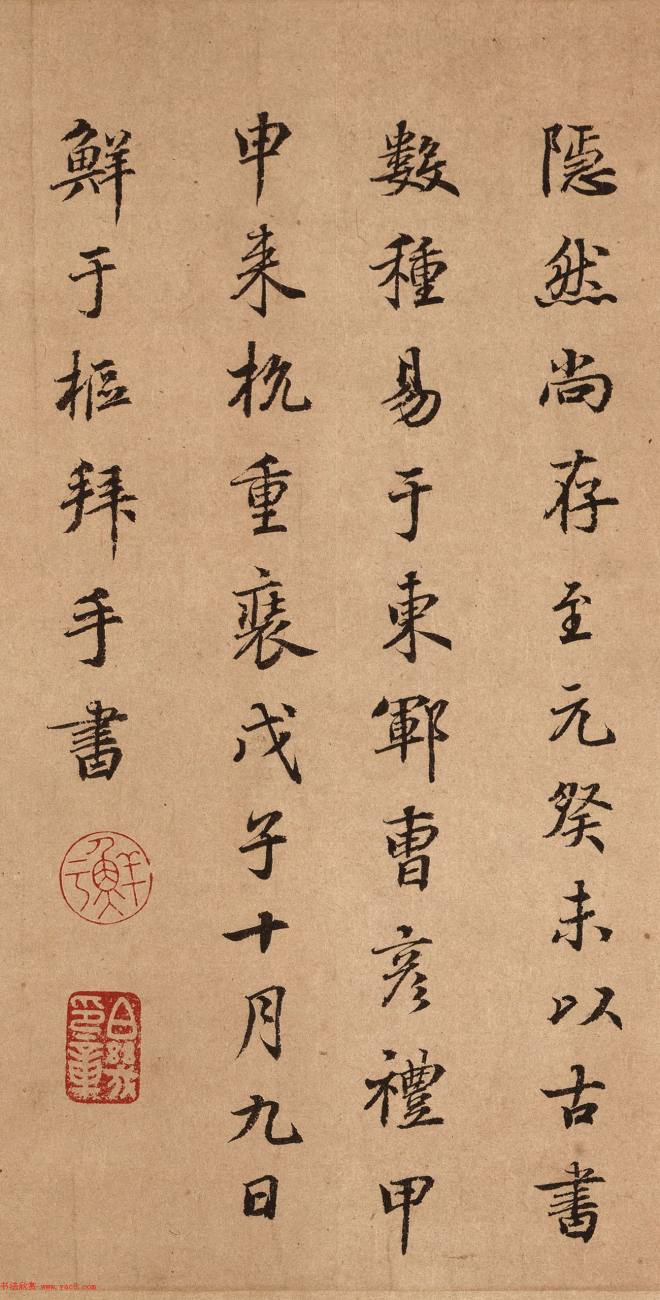 隱然尚存至元癸未以古書
數種易于東鄆曹彦禮甲
申来杭重裝戊子十月九日
鮮于樞拜手書
鮮于
书法欣赏 www.yac8.com